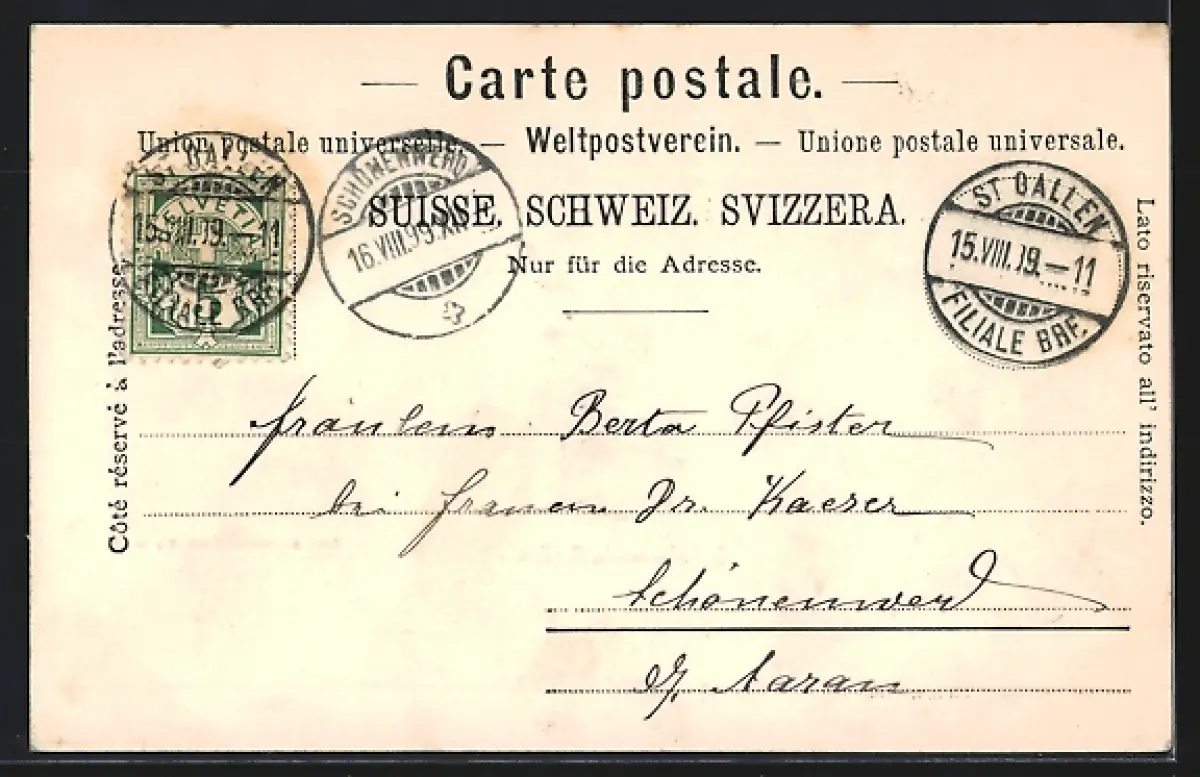 — Carte postale. —
Union postale universelle. — Weltpostverein. — Unione postale universale.
SUISSE. SCHWEIZ. SVIZZERA.
Nur für die Adresse.
Côté réservé à l'adresse.
Lato riservato all' indirizzo.
ST GALLEN
15.VIII.99.-11
FILIALE BRF.
HELVETIA
5
SCHÖNENWERD
16.VIII.99.XII
ST GALLEN
15.VIII.99.-11
FILIALE BRF.
Fräulein Berta Pfister
bei Frauen Dr. Kaeser
Schönenwerd
b/ Aarau